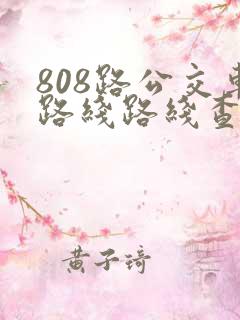 808路公交车
路线路线查
黄子琦